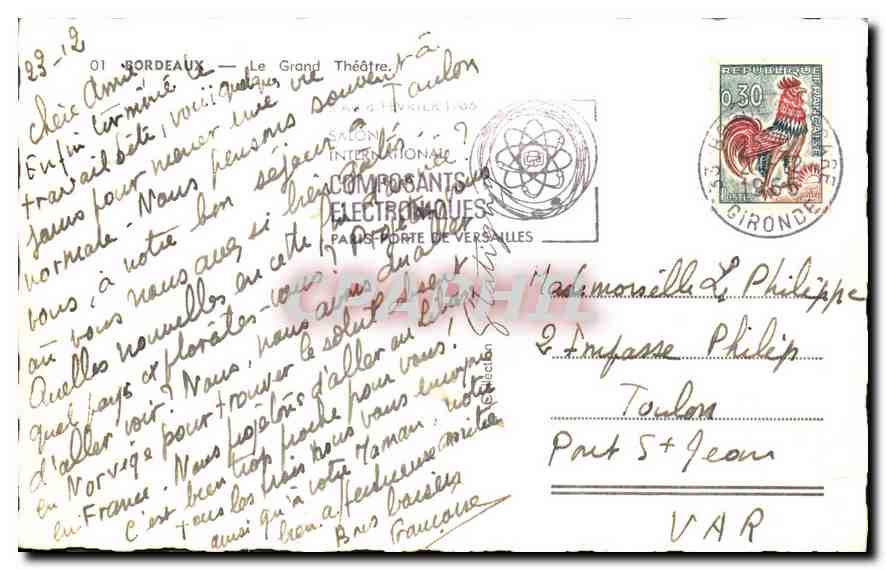 23-12
01 BORDEAUX — Le Grand Théâtre.
Chère Amie,
Enfin terminé le
travail bête, voici quelques
jours pour mener une vie
normale. Nous pensons souvent à
vous, à notre bon séjour à Toulon
où vous nous avez si bien
Quelles nouvelles en cette fin d'année ?
quel pays vous ? Projetez-vous
d'aller voir ? Nous, nous avons dû aller
en Norvège pour trouver le soleil
en France. Nous projetons d'aller au
C'est bien trop proche pour vous !
tous les trois nous vous envoyons
ainsi qu'à votre Maman, notre
bien affectueuse amitié
Bons baisers
Françoise
FÉVRIER 1966
SALON
INTERNATIONAL
COMPOSANTS
ELECTRONIQUES
PARIS-PORTE DE VERSAILLES
REPUBLIQUE FRANÇAISE
0,30
POSTES
33
1965
GIRONDE
Collection
CPAPHIL
Mademoiselle L. Philippe
2 Impasse Philip
Toulon
Pont St Jean
VAR